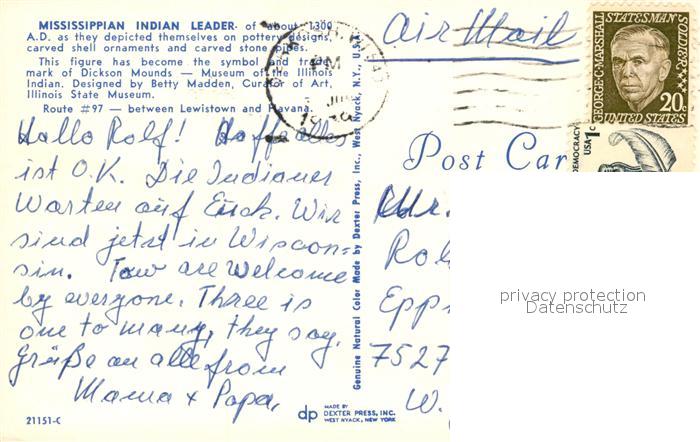 MISSISSIPPIAN INDIAN LEADER of about 1300
A.D. as they depicted themselves on pottery designs,
carved shell ornaments and carved stone pipes.
This figure has become the symbol and trade
mark of Dickson Mounds — Museum of the Illinois
Indian. Designed by Betty Madden, Curator of Art,
Illinois State Museum.
Route #97 — between Lewistown and Havana.
Hallo Rolf! Hoffe alles
ist O.K. Die Indianer
warten auf Euch. Wir
sind jetzt in Wiscon=
sin. Tow are welcome
by everyone. Three is
one to many, they say.
Grüße an alle from
Mama + Papa.
21151-C
Genuine Natural Color Made by Dexter Press, Inc., West Nyack, N.Y., U.S.A.
dp MADE BY
DEXTER PRESS, INC.
WEST NYACK, NEW YORK
PM
Air Mail
GEORGE·C·MARSHALL
STATESMAN
SOLDIER
20c
UNITED STATES
DEMOCRACY
USA 1c
Post Car
Mr.
Rol
Epp
7527
W.
privacy protection
Datenschutz